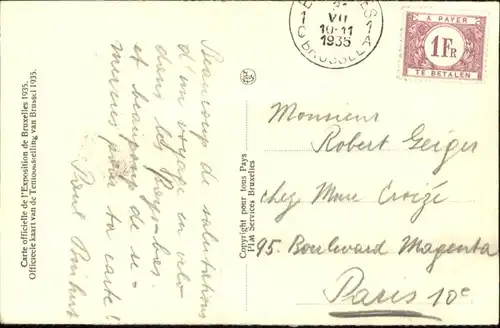 Carte officielle de l'Exposition de Bruxelles 1935.
Officieele kaart van de Tentoonstelling van Brussel 1935.
Beaucoup de salutations
d'un voyage en vélo
dans les Pays-bas.
et beaucoup de re-
mercies pour ta carte!
Paul
Copyright pour tous Pays
Plat Services Bruxelles
1 1
VII
10-11
1935
C BRUSSEL A
A PAYER
1 FR
TE BETALEN
Monsieur
Robert Geiger
chez Mme Croizé
95. Boulevard Magenta
Paris 10e